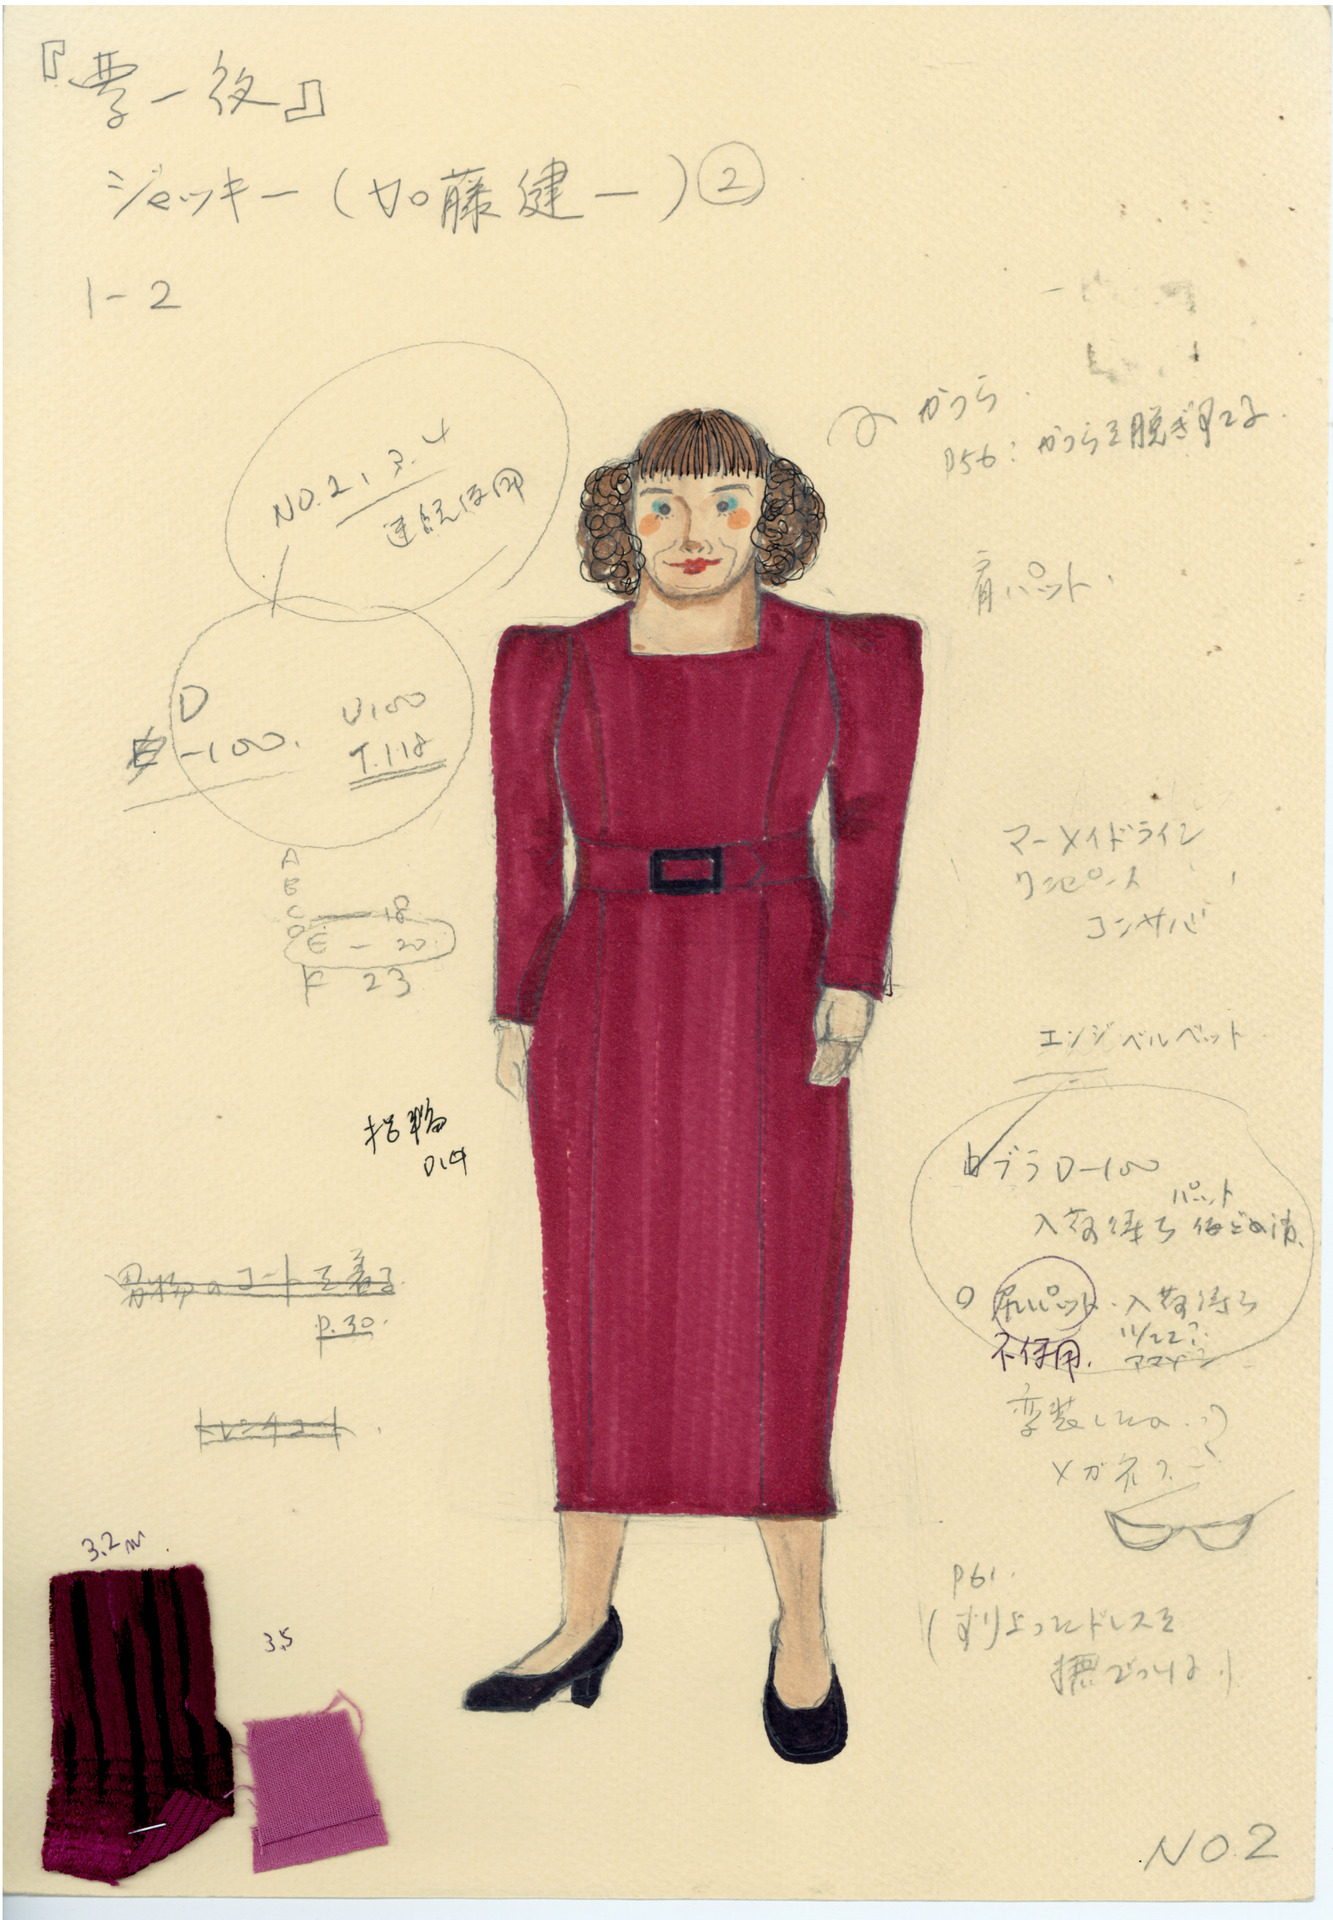 『夢一夜』
ジャッキー（加藤健一）②
1-2
NO.2,3.4
連続使用
D
-100.
U100
T.118
A
B
C — 18
D
E — 20
F 23
かつら.
P56:かつらを脱ぎすてる.
肩パット.
マーメイドライン
ワンピース
コンサバ
エンジベルベット
ブラD-100
パット
入荷待ち
尻パット.入荷待ち
11/22?
不使用.
アマゾン
変装したの..?
メガネ?
P61.
(すりよったドレスを
撫でつける)
指輪
男物のコートを着る
p.30.
トレンチコート.
3.2m.
3.5
NO.2